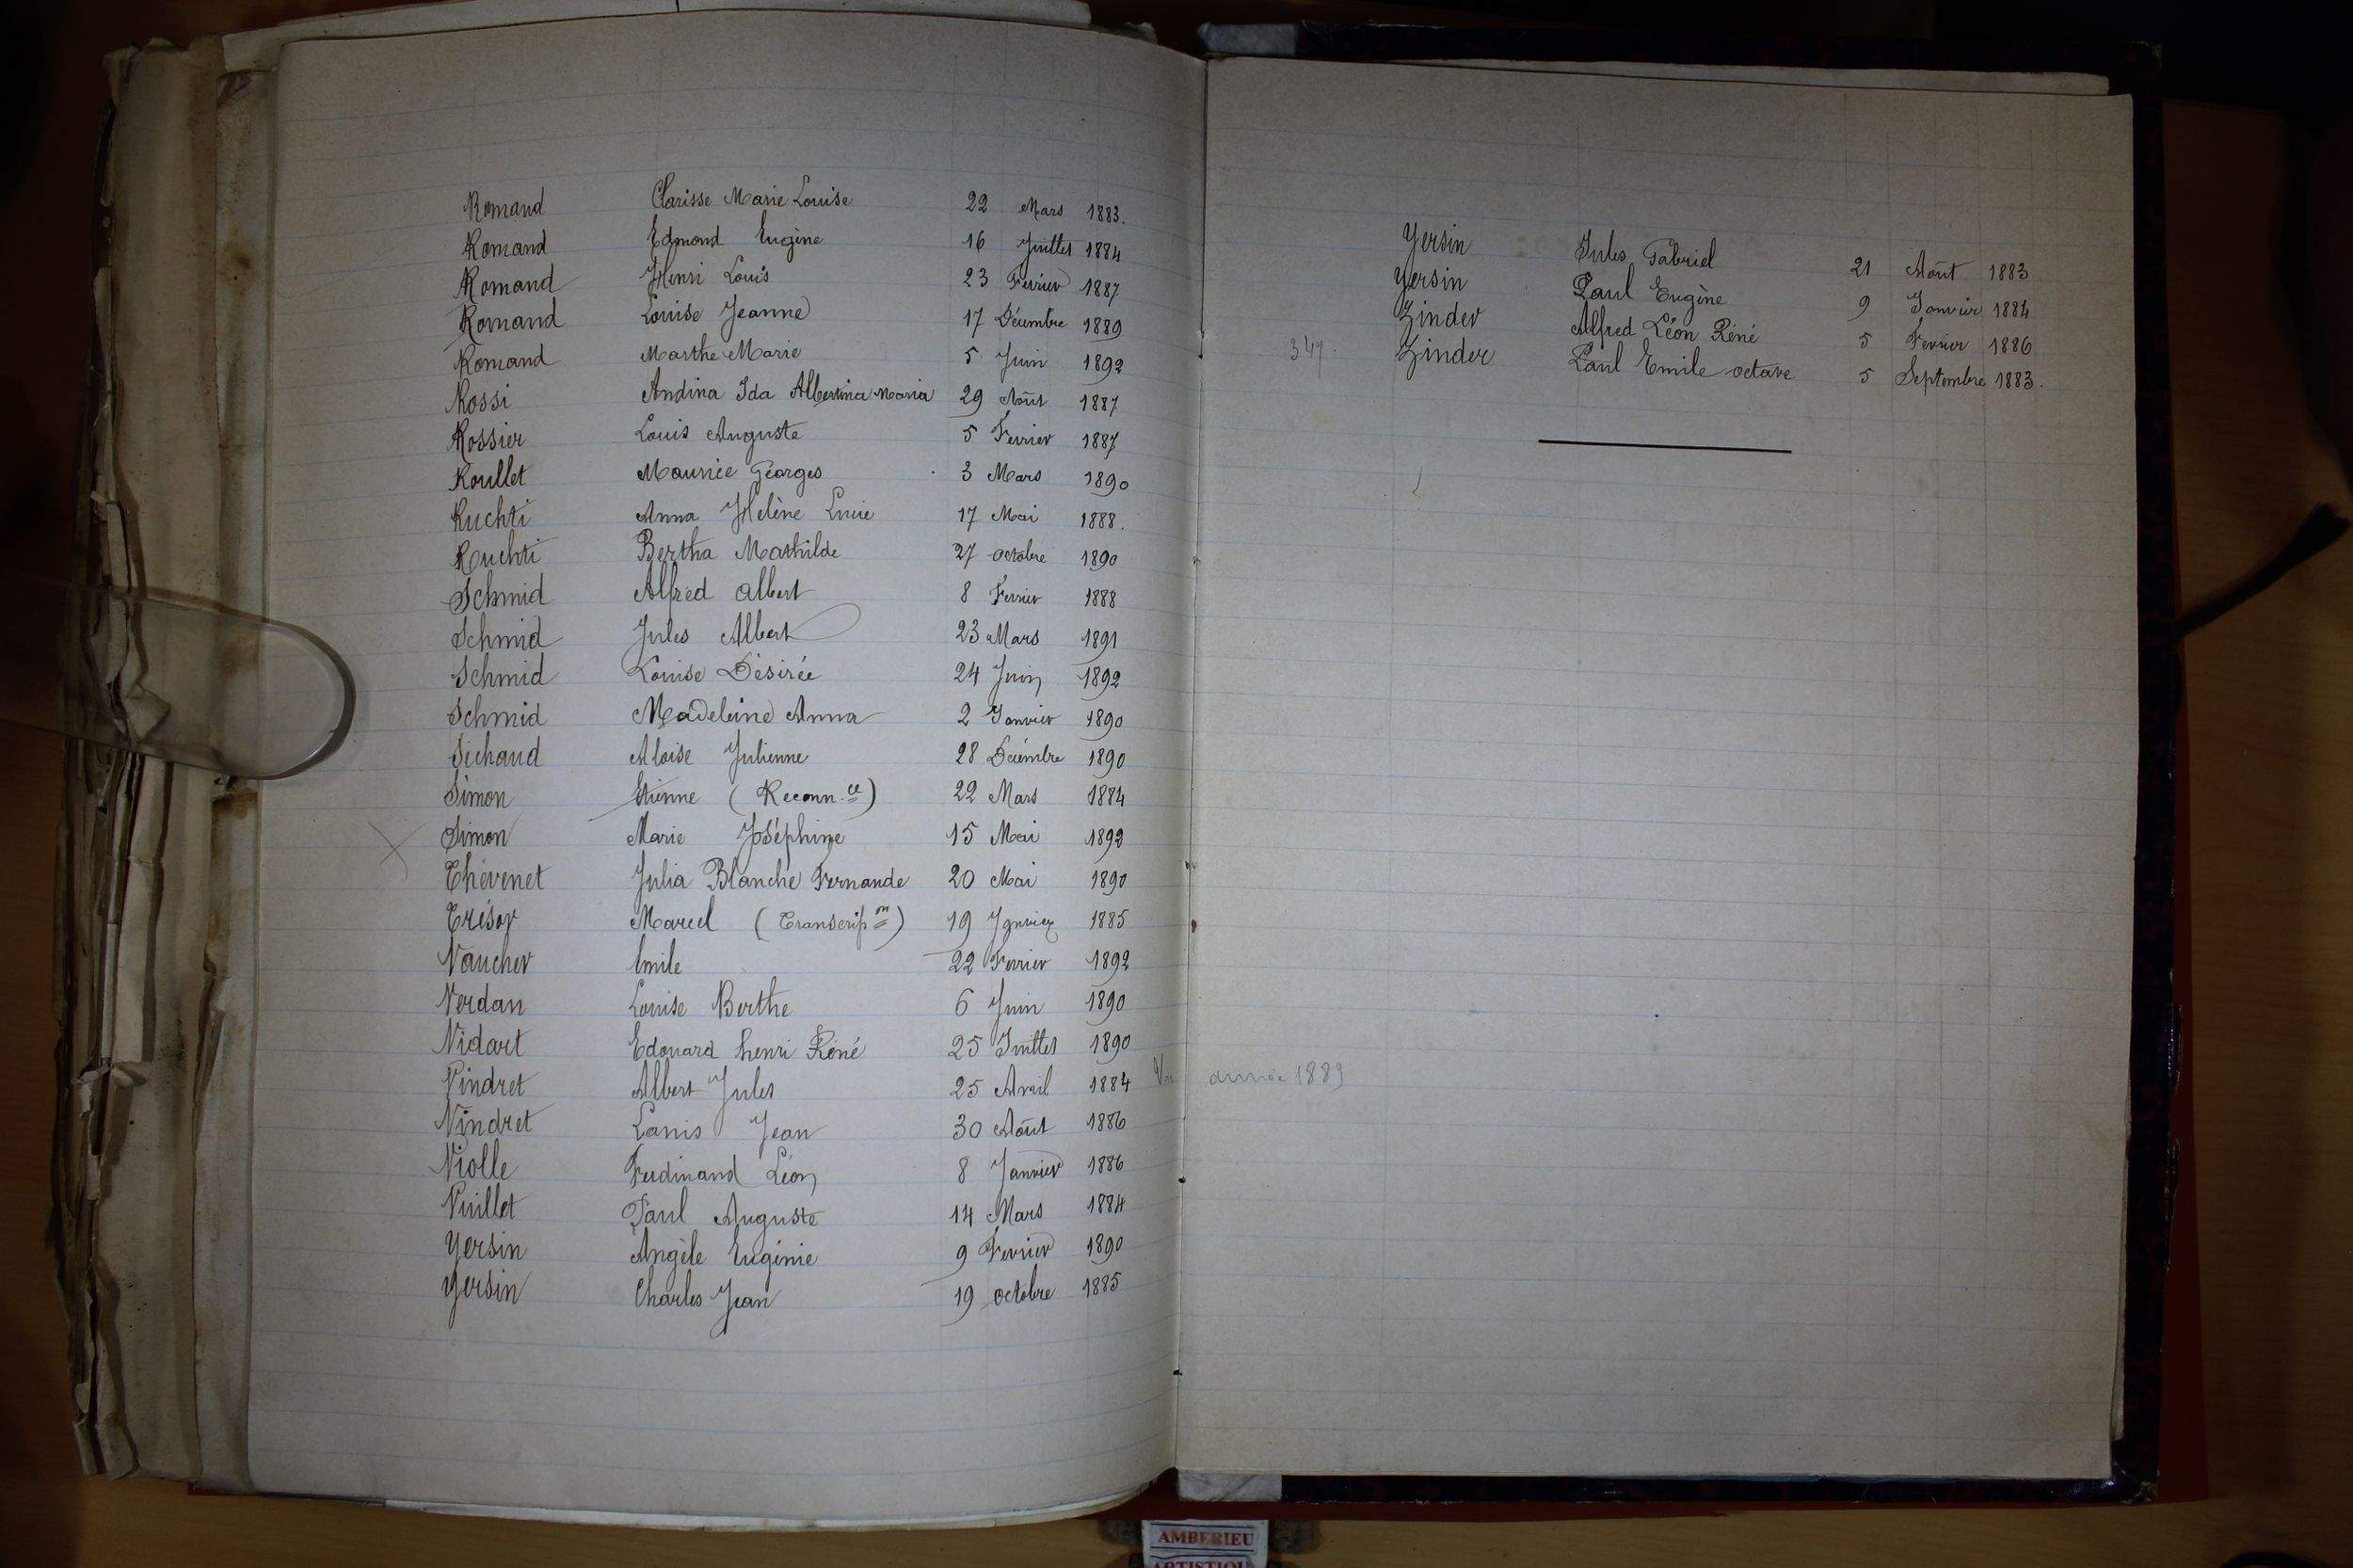 Romand Clarisse Marie Louise 22 Mars 1883.
Romand Edmond Eugène 16 Juillet 1884
Romand Henri Louis 23 Février 1887
Romand Louise Jeanne 17 Décembre 1889
Romand Marthe Marie 5 Juin 1892
Rossi Andina Ida Albertina Maria 29 Août 1887
Rossier Louis Auguste 5 Fevrier 1887
Roullet Maurice Georges 3 Mars 1890
Ruchti Anna Hélène Lucie 17 Mai 1888.
Ruchti Bertha Mathilde 27 octobre 1890
Schmid Alfred Albert 8 Fevrier 1888
Schmid Jules Albert 23 Mars 1891
Schmid Louise Désirée 24 Juin 1892
Schmid Madeleine Anna 2 Janvier 1890
Sichaud Aloïse Julienne 28 Décembre 1890
Simon Etienne (Reconn.ce) 22 Mars 1884
Simon Marie Joséphine 15 Mai 1892
Thévenet Julia Blanche Fernande 20 Mai 1890
Trésor Marcel (Transcrip.on) 19 Janvier 1885
Vaucher Emile 22 Fevrier 1892
Verdan Louise Berthe 6 Juin 1890
Vidart Edouard henri Réné 25 Juillet 1890
Vindret Albert Jules 25 Avril 1884 Voir année 1889
Vindret Louis Jean 30 Août 1886
Violle Ferdinand Léon 8 Janvier 1886
Vuillet Paul Auguste 14 Mars 1884
Yersin Angèle Eugénie 9 Fevrier 1890
Yersin Charles Jean 19 octobre 1885
Yersin Jules Gabriel 21 Août 1883
Yersin Paul Eugène 9 Janvier 1884
Zinder Alfred Léon Réné 5 Fevrier 1886
347. Zinder Paul Emile octave 5 Septembre 1883.
AMBERIEU